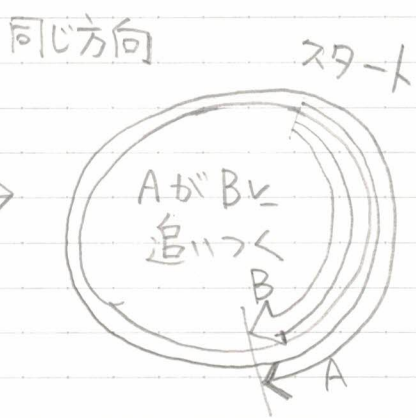 同じ方向
スタート
AがBに
追いつく
B
A